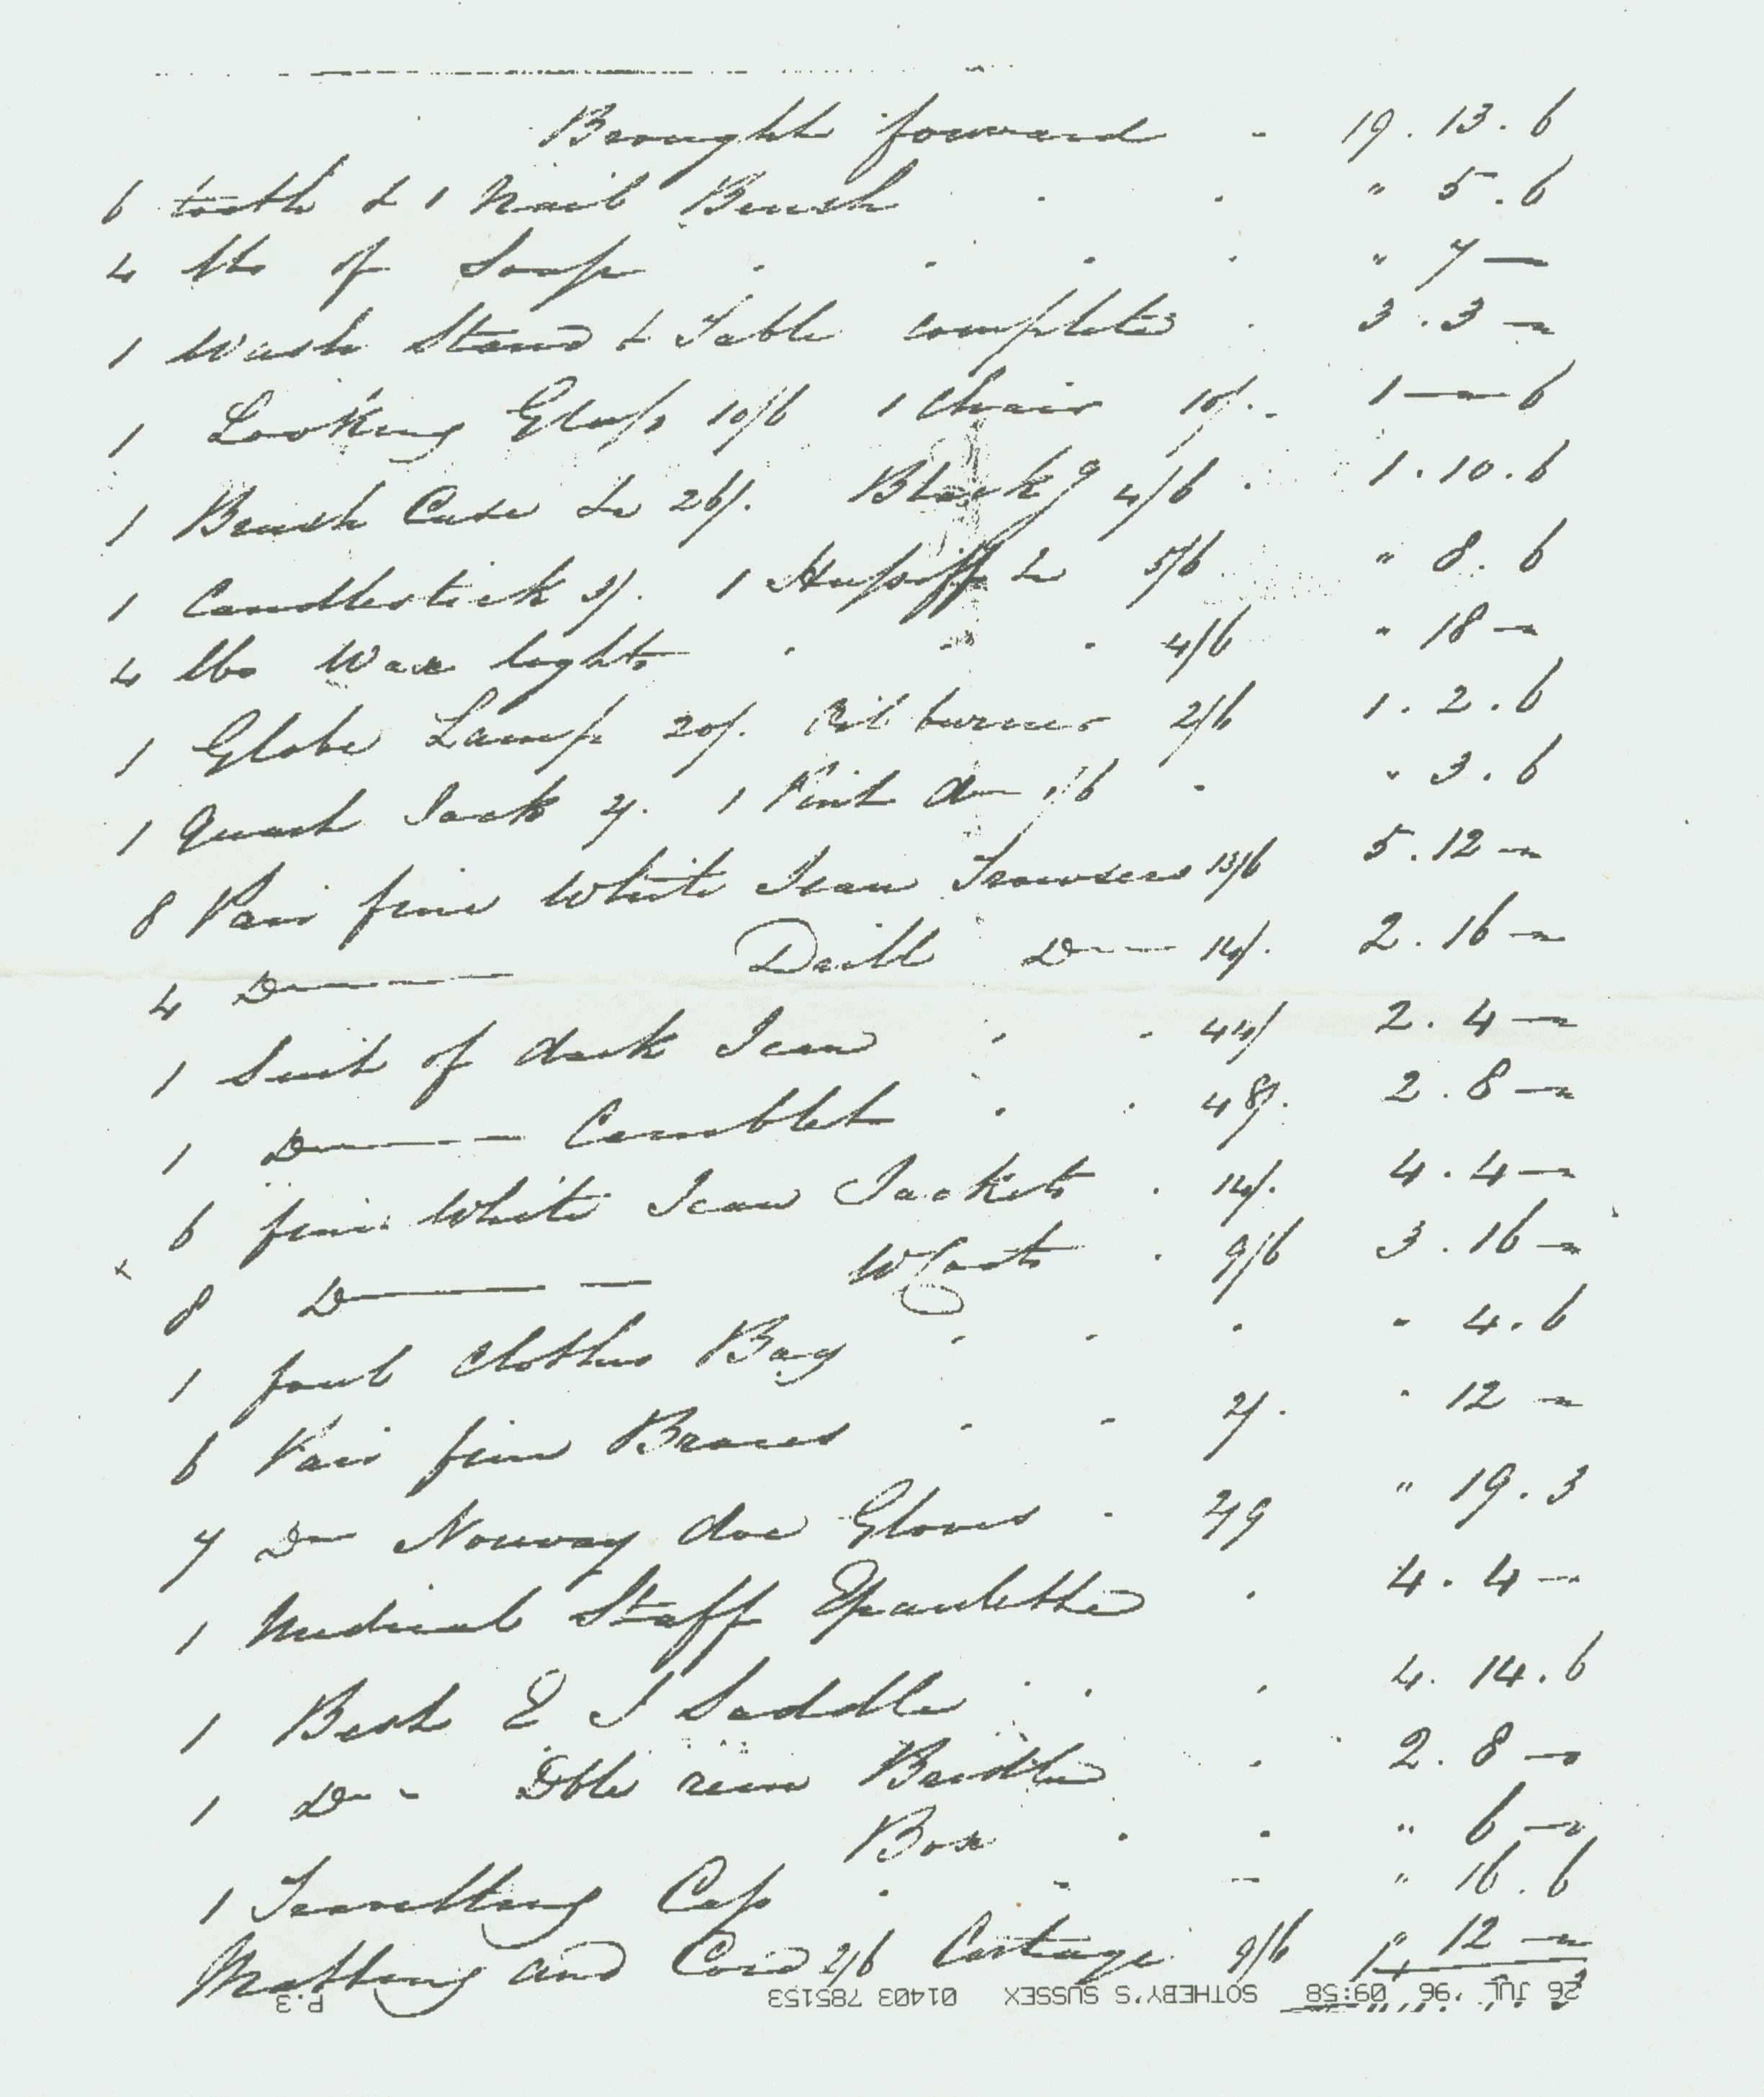 Brought forward - 19.13.6
6 tooth & 1 Nail Brush . . " 5.6
4 lbs of Soap . . . . " 7 —
1 Wash Stand & Table complete . 3.3 —
1 Looking Glass 10/6 1 Chair 10/. - 1 — 6
1 Brush Case &c 26/. Blackg 4/6 . 1.10.6
1 Candlestick 3/. 1 Hussiff &c 5/6 " 8.6
4 lbs Wax lights . . . 4/6 " 18 —
1 Globe Lamp 20/. Oil burner 2/6 1.2.6
1 Quart Jack 2/. 1 Pint do 1/6 . " 3.6
8 Pair fine White Jean Trowsers 13/6 5.12 —
4 Do — Drill Do — 14/. 2.16 —
1 Suit of dark Jean . . 44/ 2.4 —
1 Do — Camblet . . 48/. 2.8 —
6 fine White Jean Jackets . 14/. 4.4 —
x 8 Do — — WCoats . 9/6 3.16 —
1 foul Clothes Bag . . . " 4.6
6 Pair fine Braces . . 2/. " 12 —
7 Do Norway doe Gloves . 2/9 " 19.3
1 Medical Staff Epaulette . 4.4 —
1 Best E I Saddle . . . 4.14.6
1 Do - Dble rein Bridle . . 2.8 —
Box . . " 6 —
1 Travelling Cap . . - " 16.6
Matting and Cord 2/6 Cartage 9/6 " 12 —
26 JUL '96 09:58 SOTHEBY'S SUSSEX 01403 785153 P.3